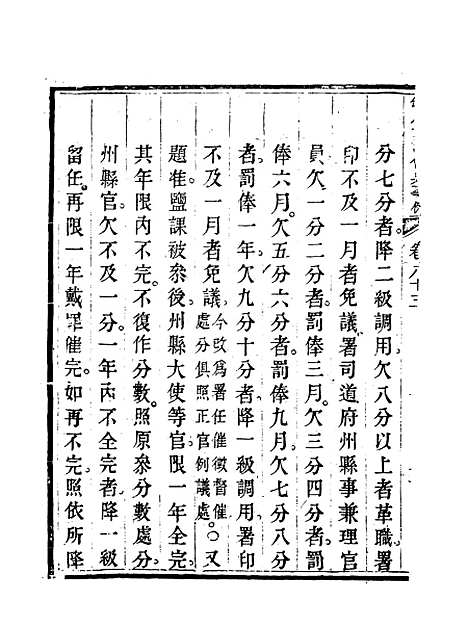 卷八十三
分七分者。降二級調用。欠八分以上者革職。署
印不及一月者免議。署司道府州縣事兼理官
員。欠一分二分者。罰俸三月。欠三分四分者。罰
俸六月。欠五分六分者。罰俸九月。欠七分八分
者。罰俸一年。欠九分十分者。降一級調用。署印
不及一月者免議。今改為署任催徵督催處分俱照正官例議處。○又
題准鹽課被參後。州縣大使等官。限一年全完。
其年限內不完。不復作分數。照原參分數處分。
州縣官。欠不及一分。一年內不全完者。降一級
留任。再限一年戴罪催完。如再不完。照依所降